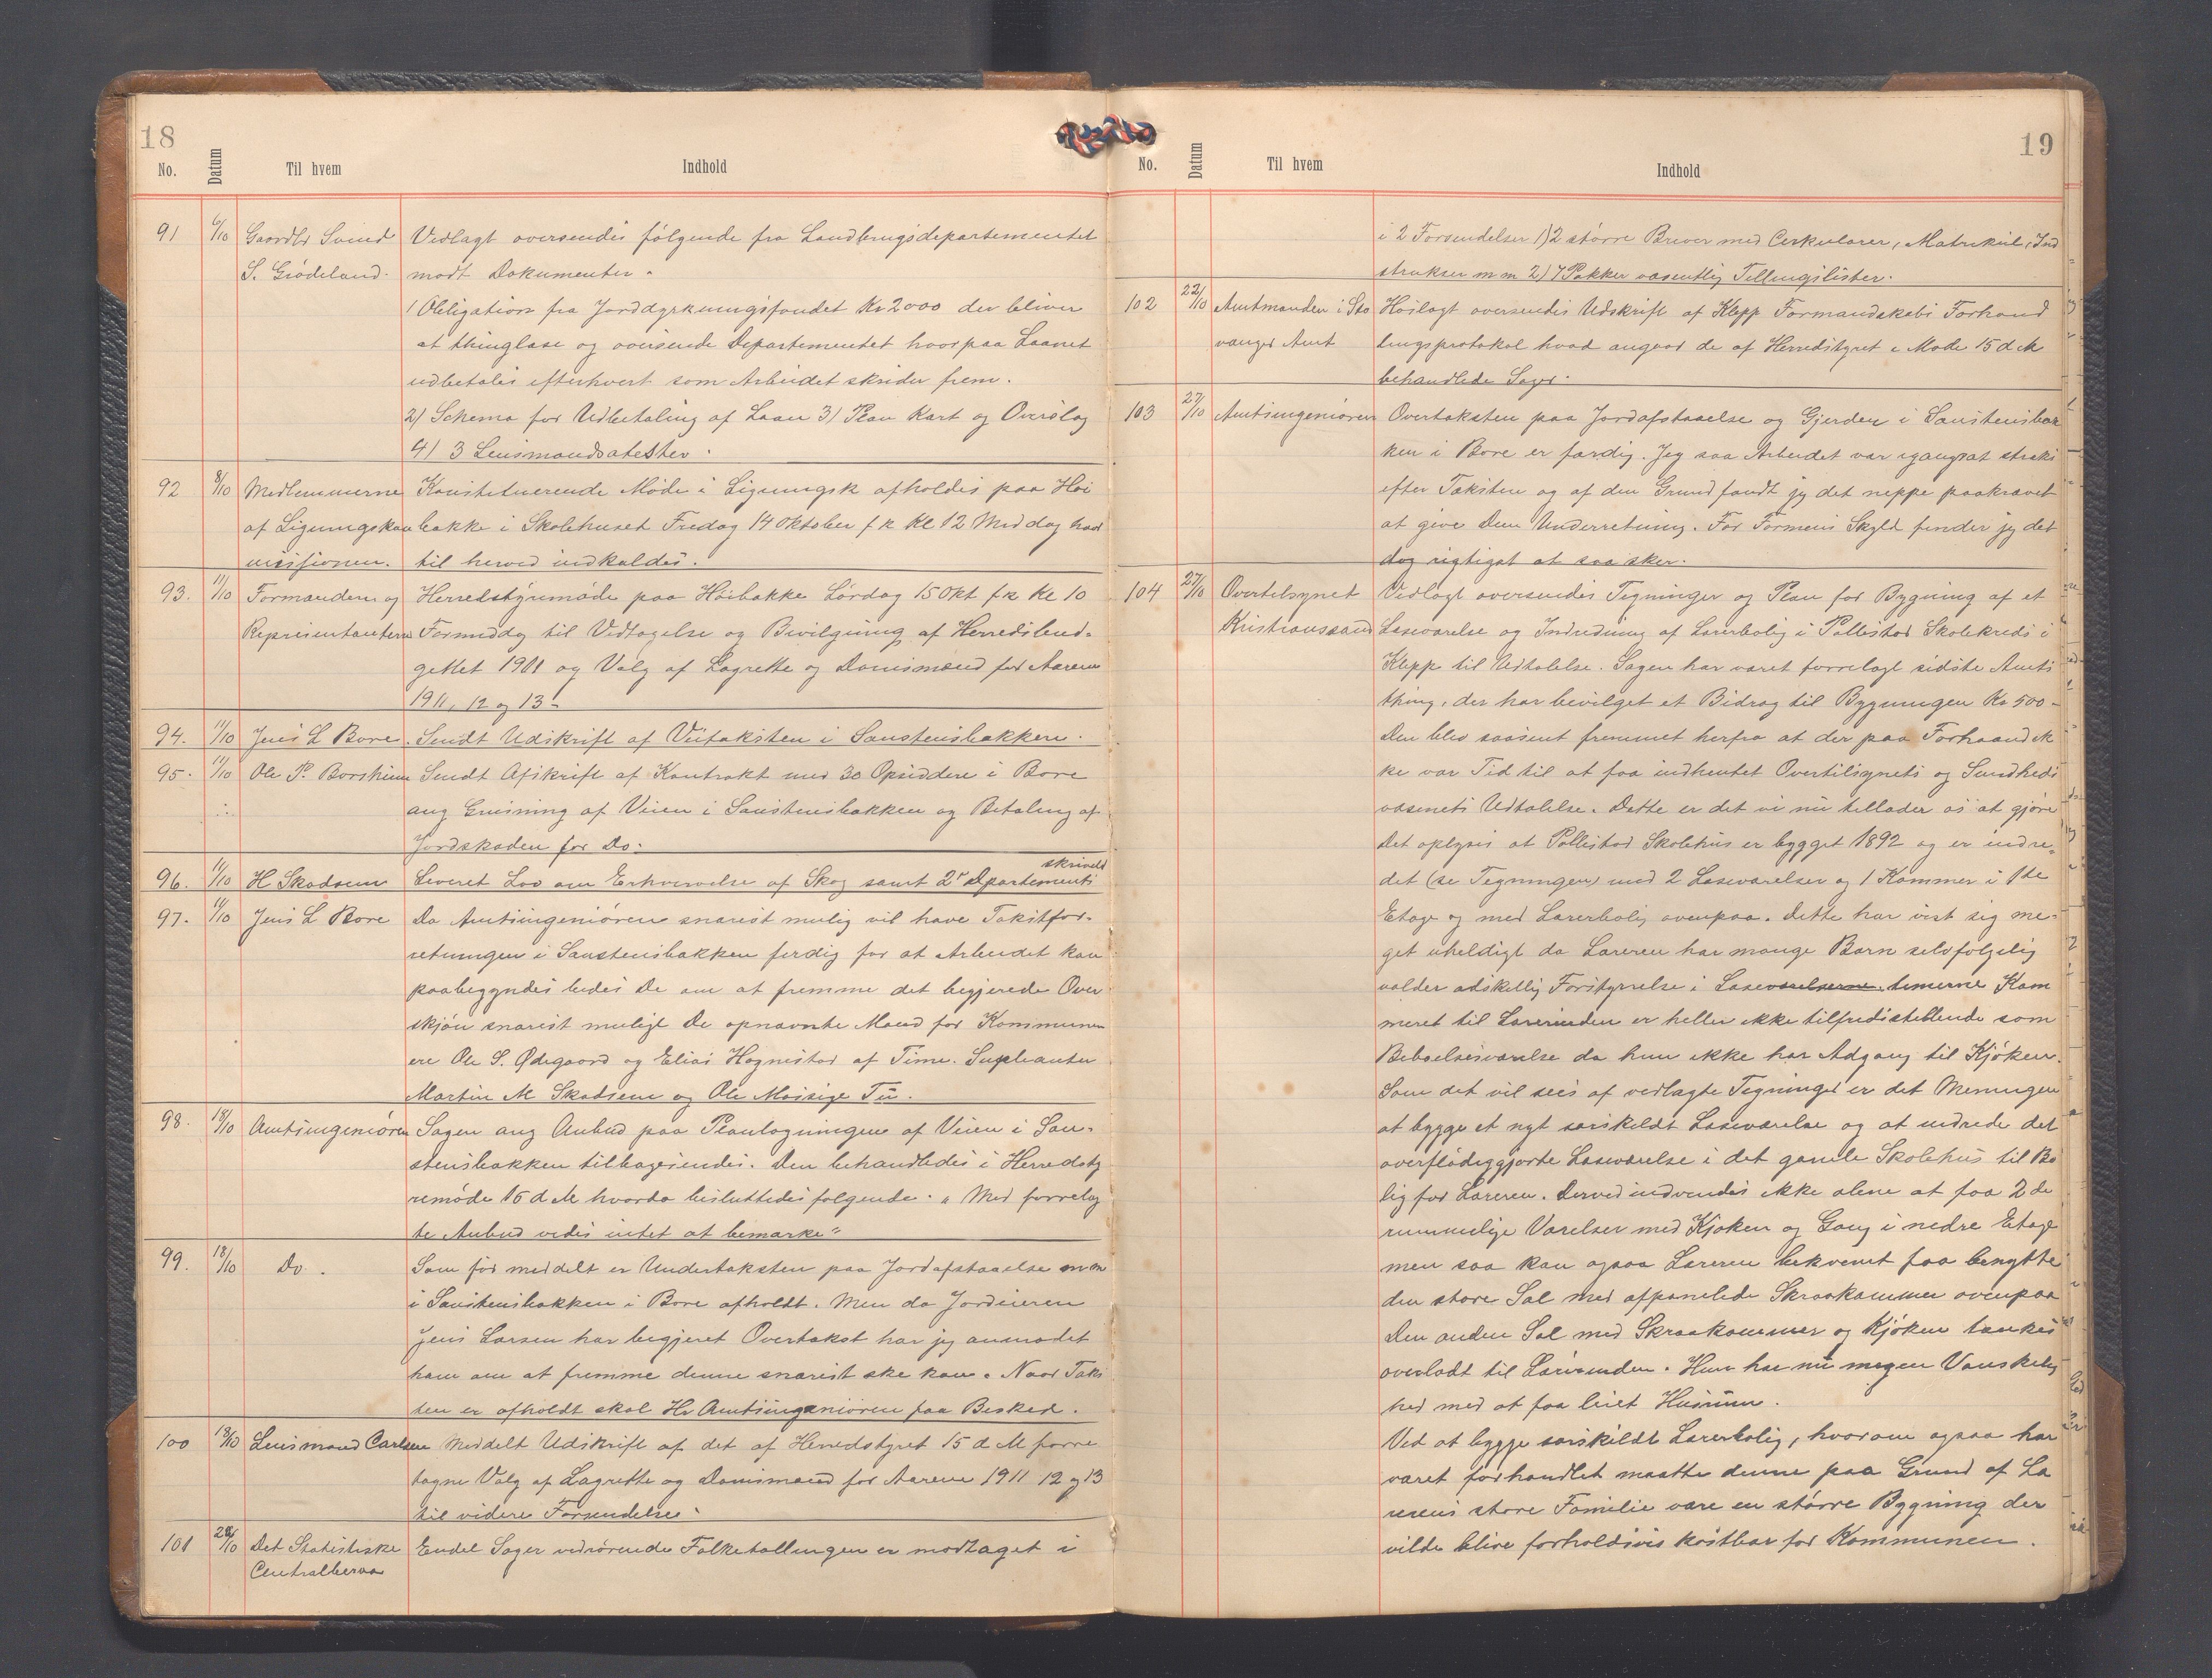 18
No. Datum Til hvem Indhold
91 6/10 Gaardbr Svend Vedlagt oversendes følgende fra Landbrugsdepartementet
S. Grødeland. modt Dokumenter.
1 Obligation fra Jorddyrkningsfondet Kr 2000 der bliver
at thinglæse og oversende Departementet hvorpaa Laanet
udbetales efterhvert som Arbeidet skrider frem.
2) Schema for Udbetaling af Laan 3) Plan Kart og Overslag
4) 3 Lensmandsatester.
92 8/10 Medlemmerne Konstituerende Møde i Ligningsk afholdes paa Høi
af Ligningskom bakke i Skolehuset Fredag 14 Oktober f k Kl 12 Middag hvor
missionen. til herved indkaldes.
93. 11/10 Formænderne og Herredstyremøde paa Høibakke Lørdag 15 Okt f k Kl 10
Repræsentanterne Formiddg til Vedtagelse og Bevilgning af Herredsbud-
gettet 1911 og Valg af Lagrette og Domsmænd for Aarene
1911, 12 og 13.
94. 11/10 Jens L Bore. Sendt Udskrift af Veitaksten i Sanstensbakken.
95. 11/10 Ole P. Borsheim Sendt Afskrift af Kontrakt med 30 Opsiddere i Bore
ang Grusning af Veien i Sanstensbakken og Betaling af
Jordskaden for Do.
skrivelse
96. 11/10 H Skadsem Leveret Lov om Erhvervelse af Skog samt 2 Departements
97. 11/10 Jens L Bore Da Amtsingeniøren snarest mulig vil have Takstfor-
retningen i Sanstensbakken ferdig for at Arbeidet kan
paabegyndes bedes De om at fremme det begjerede Over
skjøn snarest muligt De opnævnte Mænd for Kommunen
ere Ole S. Ødegaard og Elias Hognestad af Time. Supleanter
Martin M Skadsem og Ole Moisige Tu.
98. 18/10 Amtsingeniøren Sagen ang Anbud paa Planlægningen af Veien i San-
stensbakken tilbagesendes. Den behandledes i Herredsty
remøde 15 d M hvorda besluttedes følgende. "Med forrelag
te Anbud vedes intet at bemærke"
99. 18/10 Do. Som før meddelt er Undertaksten paa Jordafstaaelse m m
i Sanstensbakken i Bore afholdt. Men da Jordeieren
Jens Larsen har begjeret Overtakst har jeg anmodet
ham om at fremme denne snarest ske kan. Naar Taks
ten er afholdt skal Hr Amtsingeniøren faa Besked.
100 18/10 Lensmand Carlsen Meddelt Udskrift af det af Herredstyret 15 d M forre
tagne Valg af Lagrette og Domsmænd for Aarene 1911 12 og 13
til videre Forsendelse.
101 22/10 Det Statistiske Endel Sager vedrørende Folketællingen er modtaget i
Centralbureau
19
No. Datum Til hvem Indhold
i 2 Forsendelser 1) 2 større Breve med Cirkulærer, Matrikul, Ind
strukser m m 2) 7 Pakker væsentlig Tellingslister.
102 22/10 Amtmanden i Sta Hoslagt oversendes Udskrift af Klepp Formandskabs Forhand
vanger Amt lingsprotokol hvad angaar de af Herredstyret i Møde 15 d M
behandlede Sager.
103 27/10 Amtsingeniøren Overtaksten paa Jordafstaaelse og Gjerder i Sanstensbak
ken i Bore er færdig. Jeg saa Arbeidet var igangsat straks
efter Taksten og af den Grund fandt jg det neppe paakrævet
at give Dem Underretning. For Formens Skyld finder jg det
dog rigtigst at saa sker.
104 27/10 Overtilsynet Vedlagt oversendes Tegninger og Plan for Bygning af et
Kristianssand Læseværelse og Indredning af Lærerbolig i Pollestad Skolekreds i
Klepp til Udtalelse. Sagen har været forrelagt sidste Amts
thing, der har bevilget et Bidrag til Bygningen Kr 500-
Den blev saasent fremmet herfra at der paa Forhaand ik
ke var Tid til at faa indhentet Overtilsynets og Sundheds
væsenets Udtalelse. Dette er det vi nu tillader os at gjøre
Det oplyses at Pollestad Skolehus er bygget 1892 og er indre-
det (se Tegningen) med 2 Læseværelser og 1 Kammer i 1ste
Etage og med Lærerbolig ovenpaa. Dette har vist sig me-
get uheldigt da Læreren har mange Børn selvfølgelig
volder adskillig Forstyrrelse i Læseværelserne. timerne Kam
meret til Lærerinden er heller ikke tilfredsstellende som
Beboelsesværelse da hun ikke har Adgang til Kjøken.
Som det vil sees af vedlagte Tegninger er det Meningen
at bygge et nyt særskildt Læseværelse og at indrede det
overflødiggjorte Læseværelse i det gamle Skolehus til Bo
lig for Læreren. Derved indvendes ikke alene at faa 2 de
rummelige Værelser med Kjøken og Gang i nedre Etage
men saa kan ogsaa Læreren bekvemt faa benytte
den store Sal med afpanelede Skraakammer ovenpaa
Den anden Sal med Skraakammer og Kjøken tænkes
overladt til Lærerinden. Hun har nu megen Vanskelig
hed med at faa leiet Husrum.
Ved at bygge særskildt Lærerbolig, hvorom ogsaa har
været forhandlet maatte denne paa Grund af Læ
rerens store Familie være en større Bygning der
vilde blive forholdsvis kostbar for Kommunen.